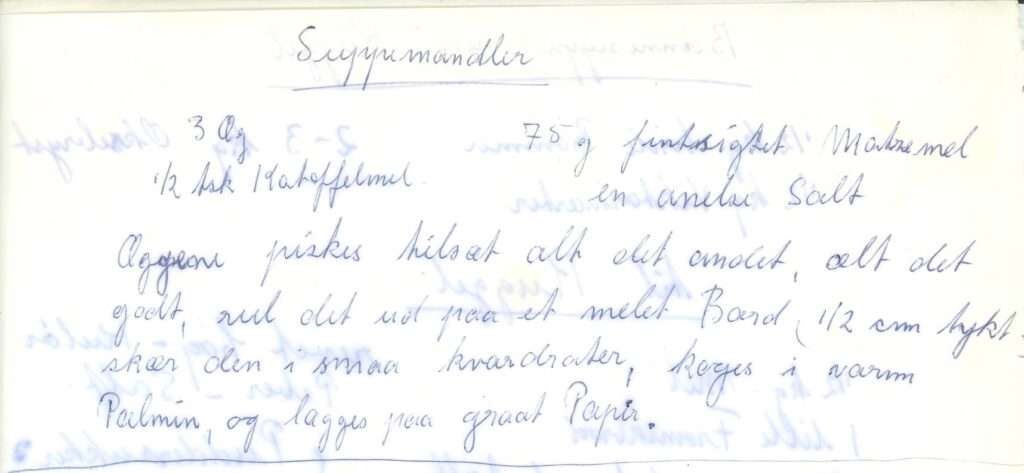 Suppemandler
3 Æg 75 g fintsigtet Matzemel
1/2 tsk Katoffelmel en anelse Salt
Æggene piskes tilsæt alt det andet, ælt det
godt, rul det ud paa et melet Bord, 1/2 cm tykt
skær den i smaa kvardrater, koges i varm
Palmin, og lægges paa graat Papir.